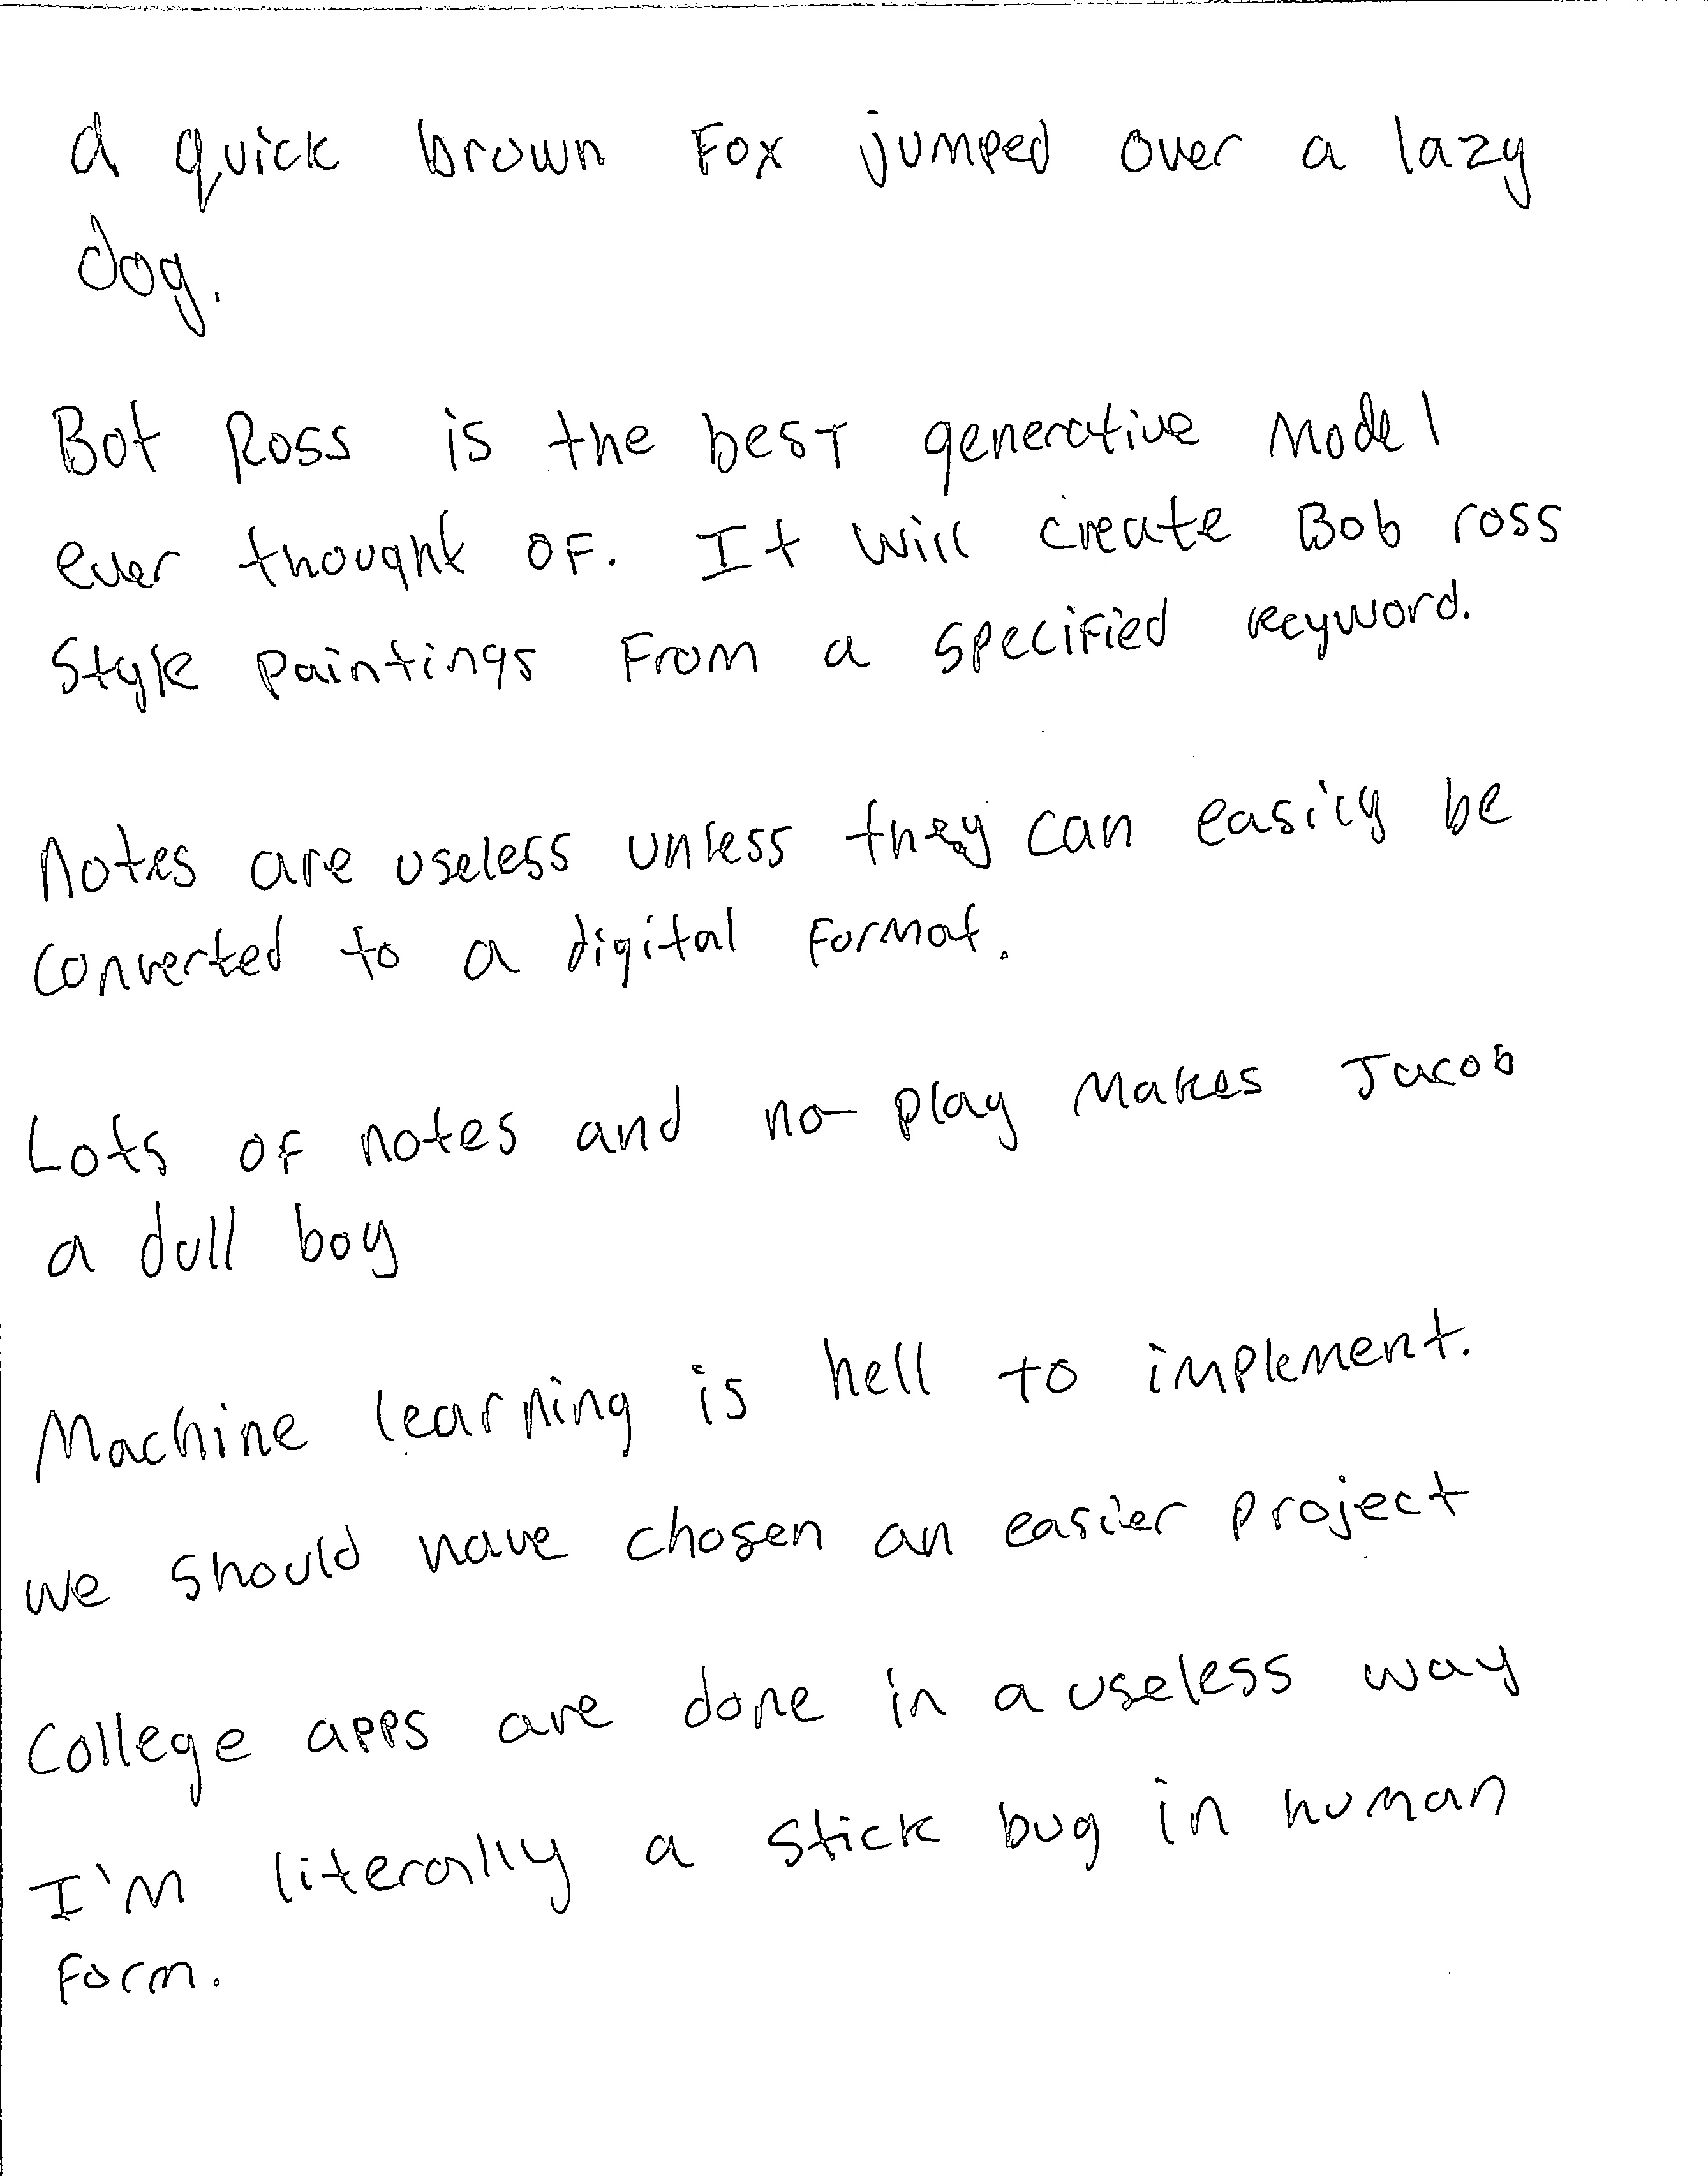 a quick brown Fox jumped over a lazy
dog.
Bot Ross is the best generative Model
ever thought of. It will create Bob ross
Style paintings From a specified keyword.
Notes are useless unless they can easily be
converted to a digital format.
Lots of notes and no play Makes Jacob
a dull boy
Machine learning is hell to implement.
we should have chosen an easier project
College apps are done in a useless way
I'm literally a stick bug in human
Form.